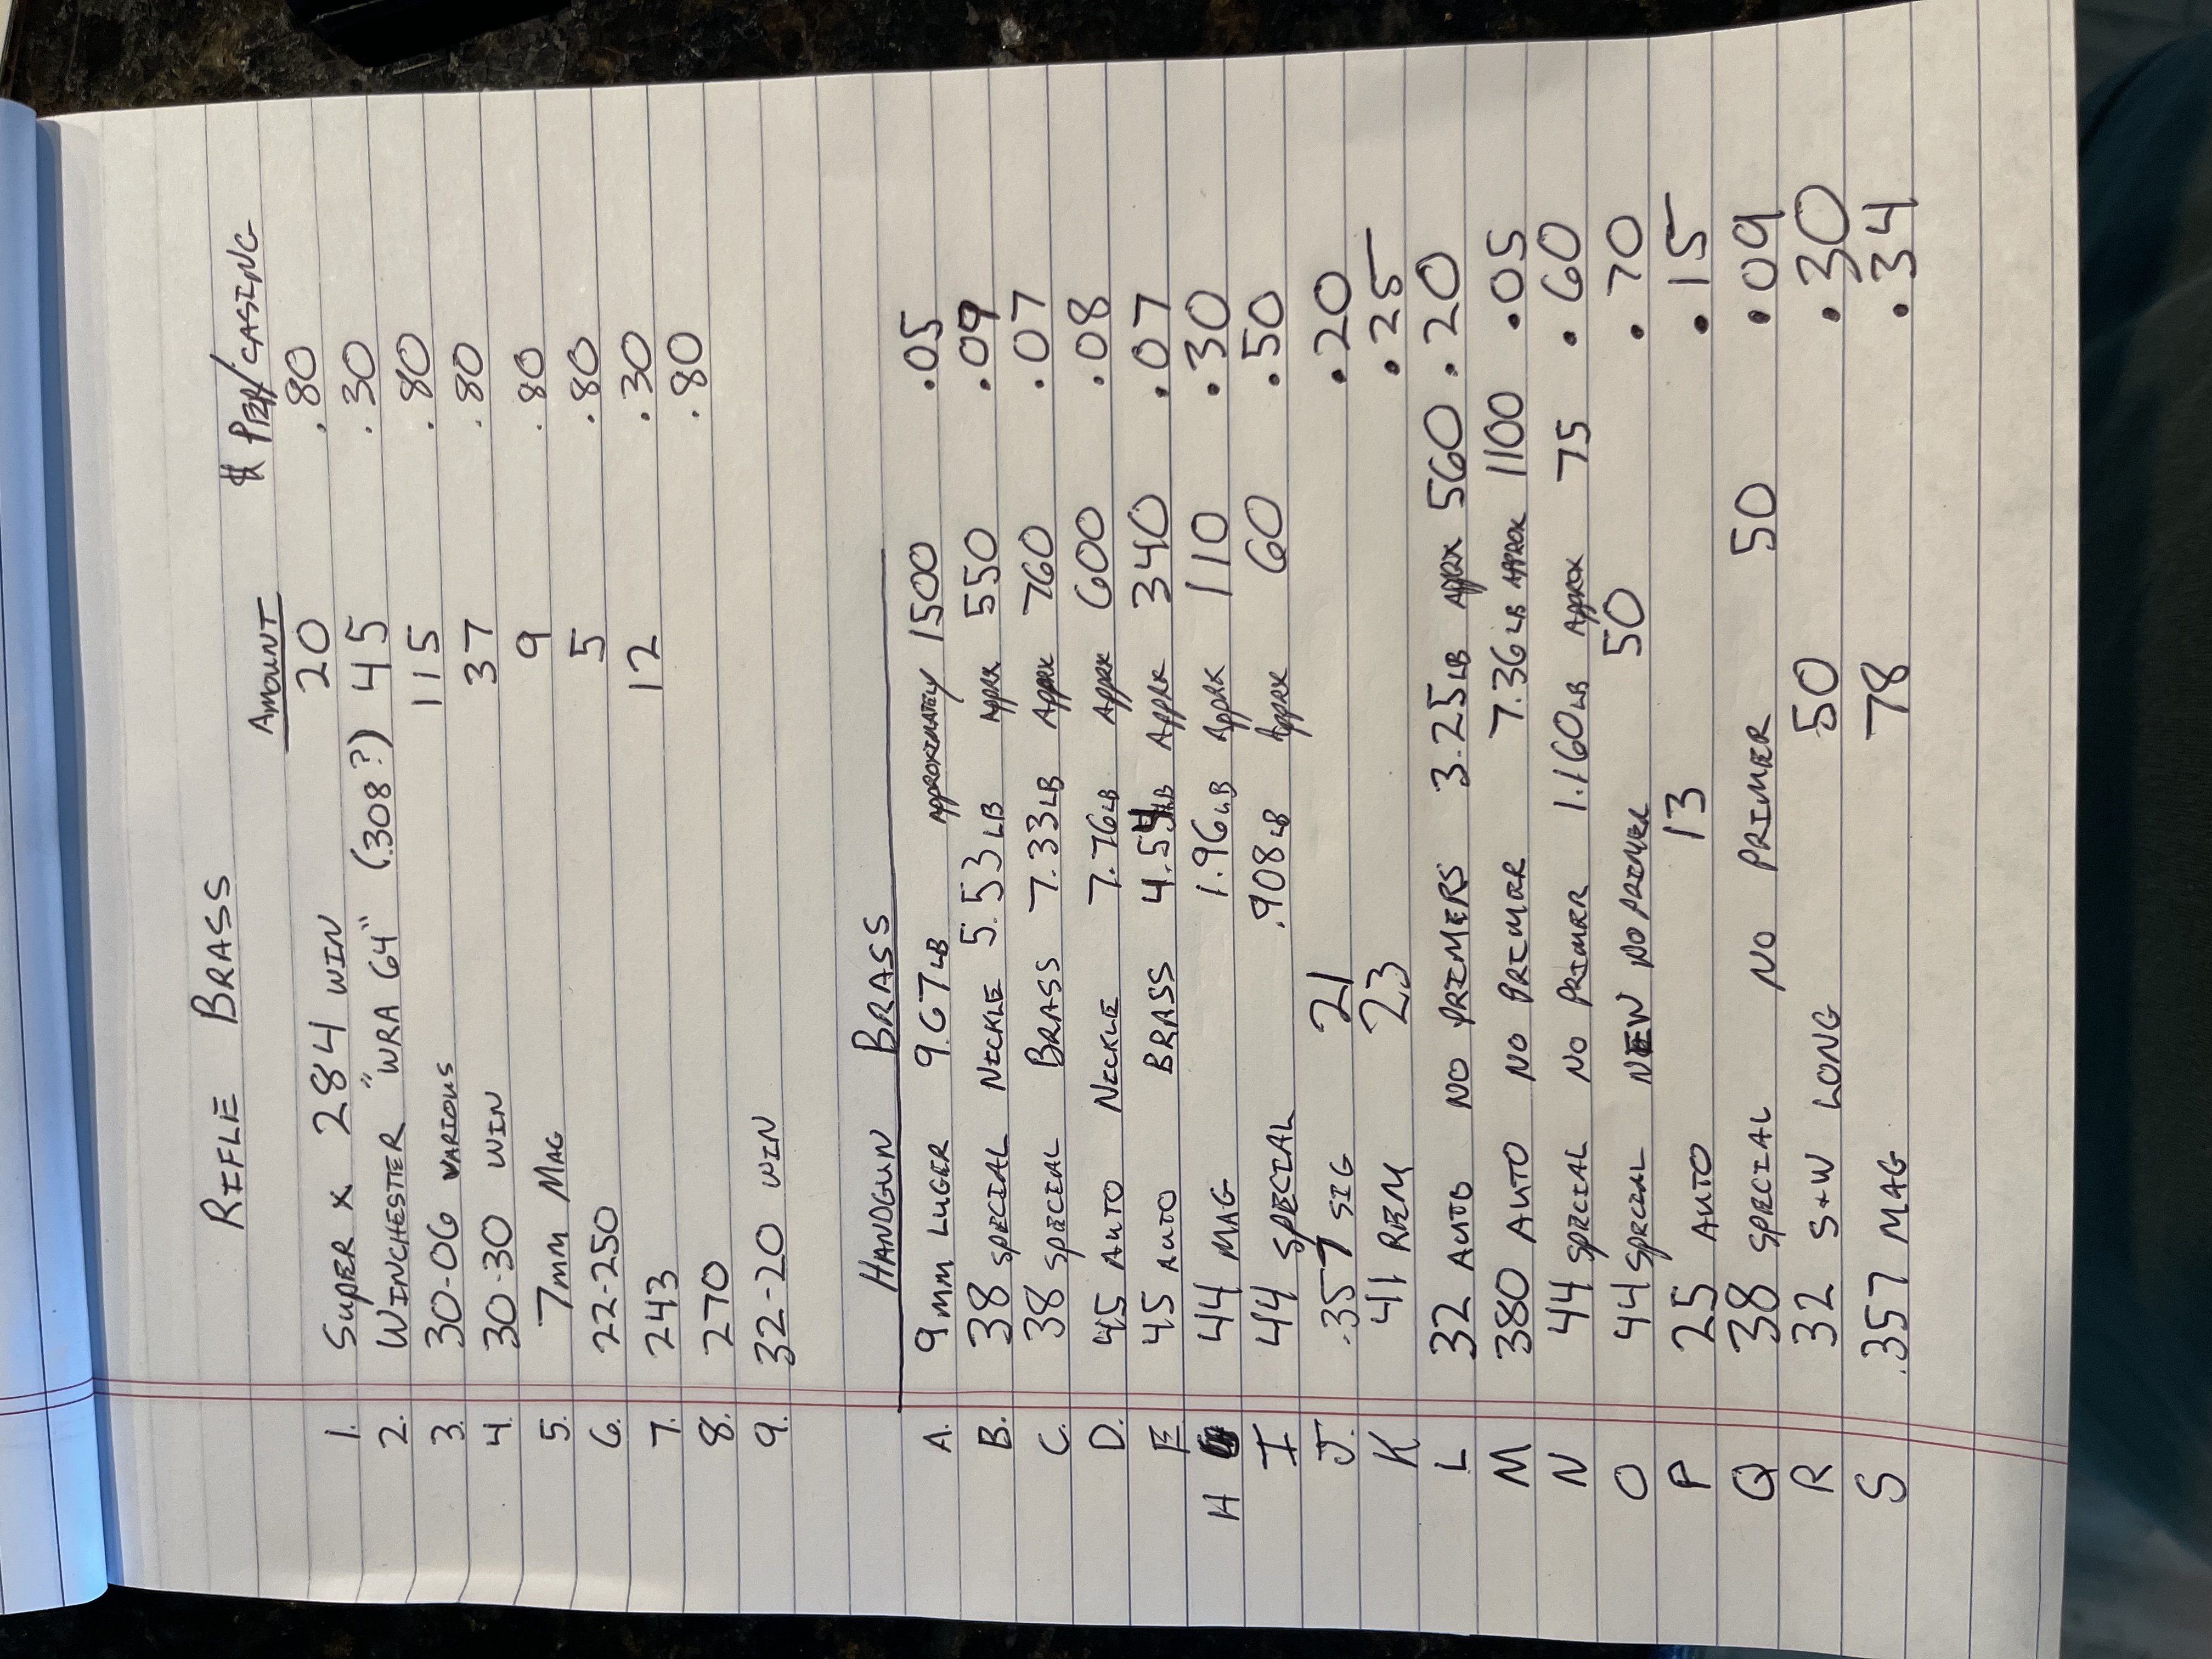 RIFLE BRASS
AMOUNT $ PER/CASING
1. SUPER X 284 WIN 20 .80
2. WINCHESTER "WRA 64" (.308?) 45 .30
3. 30-06 VARIOUS 115 .80
4. 30-30 WIN 37 .80
5. 7MM MAG 9 .80
6. 22-250 5 .80
7. 243 12 .30
8. 270 .80
9. 32-20 WIN
HANDGUN BRASS
A. 9MM LUGER 9.67 LB APPROXIMATELY 1500 .05
B. 38 SPECIAL NICKLE 5.53 LB APPRX 550 .09
C. 38 SPECIAL BRASS 7.33 LB APPRX 760 .07
D. 45 AUTO NICKLE 7.76 LB APPRX 600 .08
E 45 AUTO BRASS 4.54 LB APPRX 340 .07
H 44 MAG 1.96 LB APPRX 110 .30
I 44 SPECIAL .908 LB APPRX 60 .50
J. .357 SIG 21 .20
K 41 REM 23 .25
L 32 AUTO NO PRIMERS 3.25 LB APPRX 560 .20
M 380 AUTO NO PRIMER 7.36 LB APPROX 1100 .05
N 44 SPECIAL NO PRIMER 1.160 LB APPROX 75 .60
O 44 SPECIAL NEW NO PRIMER 50 .70
P 25 AUTO 13 .15
Q 38 SPECIAL NO PRIMER 50 .09
R 32 S+W LONG 50 .30
S .357 MAG 78 .34